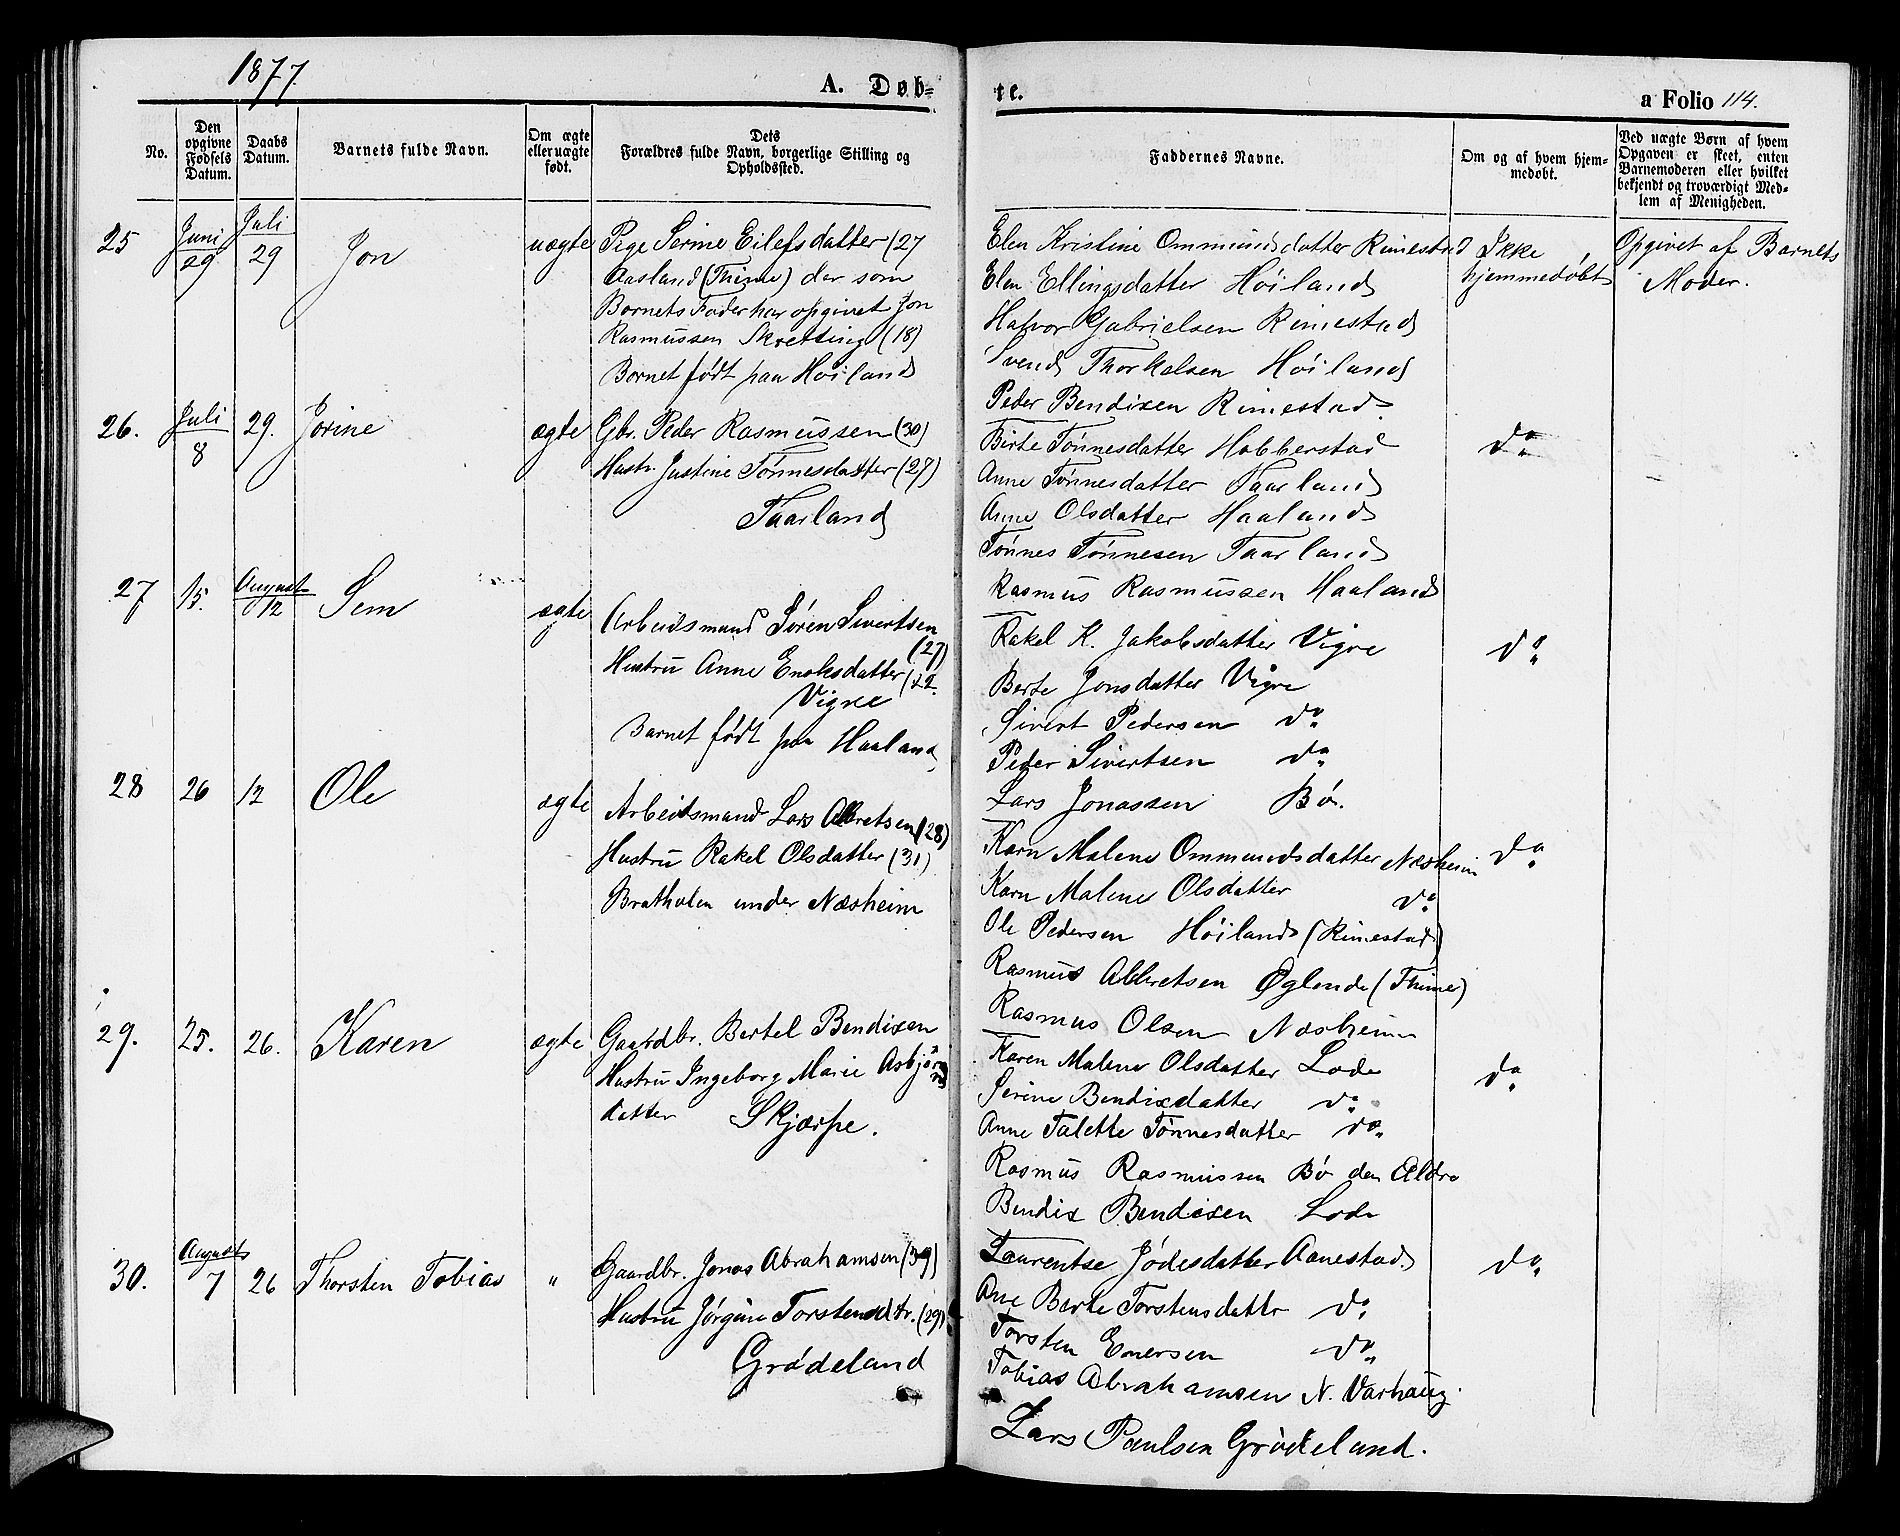 1877.
A. Døb-
te.
a Folio 114.
No.
Den opgivne Fødsels Datum.
Daabs Datum.
Barnets fulde Navn.
Om ægte eller uægte født.
Dets Forældres fulde Navn, borgerlige Stilling og Opholdssted.
Faddernes Navne.
Om og af hvem hjemmedøbt.
Ved uægte Børn af hvem Opgaven er skeet, enten Barnemoderen eller hvilket bekjendt og troværdigt Medlem af Menigheden.
25
Juni 29
Juli 29
Jon
uægte
Pige Serine Eilefsdatter (27
Aasland (Thime) der som
Barnets Fader har opgivet Jon
Rasmussen Skretting (18)
Barnet født paa Høiland
Elen Kristine Ommundsdatter Rimestad
Elen Ellingsdatter Høiland
Halvor Gabrielsen Rimestad
Svend Thorkelsen Høiland
Peder Bendixen Rimestad
Ikke
hjemmedøbt
Opgivet af Barnets
Moder.
26.
Juli 8
29.
Jorine
ægte
Gbr. Peder Rasmussen (30)
Hustr. Justine Tönnesdatter (27)
Taarland
Birte Tönnesdatter Hobberstad
Anne Tönnesdatter Taarland
Anne Olsdatter Haaland
Tönnes Tönnesen Taarland
Rasmus Rasmussen Haaland
do
27
15.
August 12
Sem
ægte
Arbeidsmand Sören Sivertsen
(27)
Hustru Anne Enoksdatter (22.
Vigre
Barnet født paa Haaland
Rakel K. Jakobsdatter Vigre
Berte Jonsdatter Vigre
Sivert Pedersen do
Peder Sivertsen do
Lars Jonassen Bø.
do
28
26
12
Ole
ægte
Arbeidsmand Lars Albretsen (28)
Hustru Rakel Olsdatter (31)
Bratholen under Næsheim
Karn Malene Ommundsdatter Næsheim
Karn Malene Olsdatter do
Ole Pedersen Høiland (Rimestad)
Rasmus Albretsen Øglende (Thime)
Rasmus Olsen Næsheim
do
29.
25.
26.
Karen
ægte
Gaardbr. Bertel Bendixen
Hustru Ingeborg Marie Asbjørns
datter Skjærpe.
Karen Malene Olsdatter Lode
Serine Bendixdatter do
Anne Talette Tönnesdatter do
Rasmus Rasmussen Bø den Ældre
Bendix Bendixen Lode
do
30.
August 7
26
Thorsten Tobias
"
Gaardbr. Jonas Abrahamsen (39)
Hustru Jørgine Torstensdtr. (29)
Grødeland
Laurentse Jødesdatter Aanestad.
Ane Berte Torstensdattr do
Torsten Enersen do
Tobias Abrahamsen N. Varhaug.
Lars Paulsen Grødeland.
do